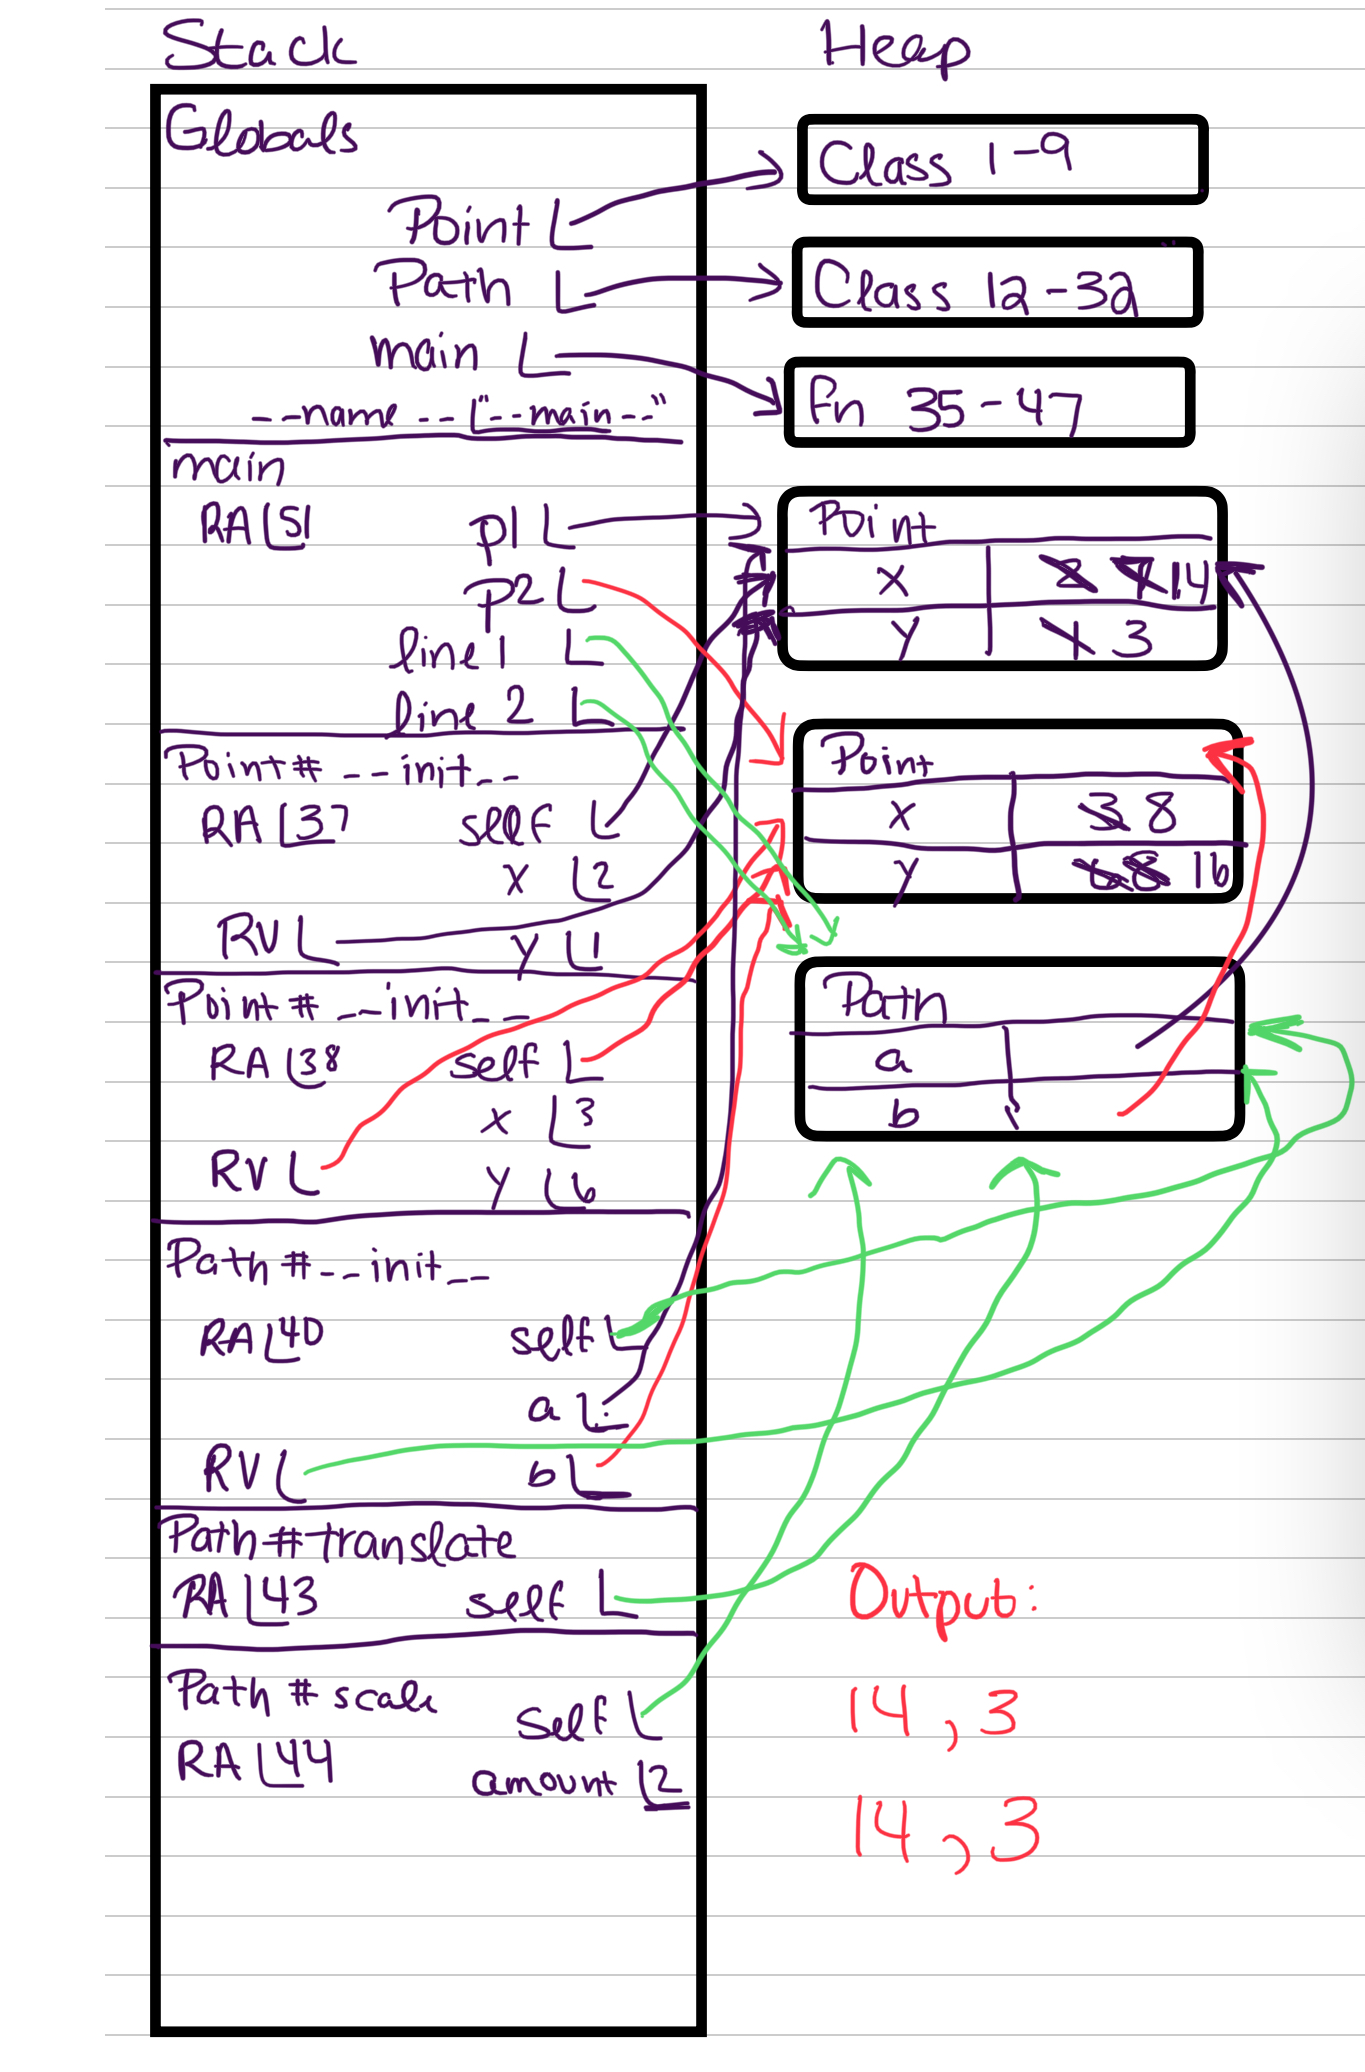 Stack
Globals
Point
Path
main
__name__ "__main__"
main
RA 51
p1
p2
line1
line 2
Point#__init__
RA 37
self
x 2
RV
y 1
Point#__init__
RA 38
self
x 3
RV
y 6
Path#__init__
RA 40
self
a
RV
b
Path#translate
RA 43
self
Path#scale
RA 44
self
amount 2
Heap
Class 1-9
Class 12-32
Fn 35-47
Point
x 2 7 14
y 1 3
Point
x 3 8
y 6 8 16
Path
a
b
Output:
14,3
14,3